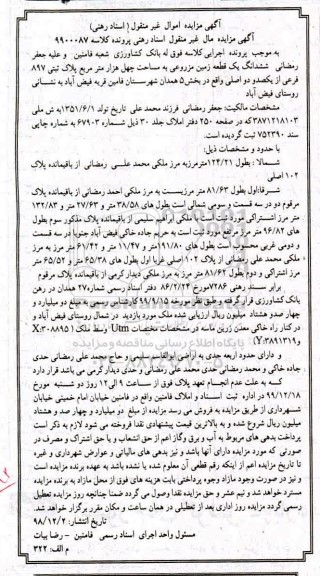 آگهی مزایده اموال غیر منقول (اسناد رهنی)
آگهی مزایده مال غیر منقول اسناد رهنی پرونده کلاسه ۹۹۰۰۰۸۷
به موجب پرونده اجرایی کلاسه فوق له بانک کشاورزی شعبه فامنین و علیه جعفر
رمضانی ششدانگ یک قطعه زمین مزروعی به مساحت چهل هزار متر مربع پلاک ثبتی ۸۹۷
فرعی از یکصدو دو اصلی واقع در بخش ۵ همدان شهرستان فامنین قریه فیض آباد به نشانی
روستای فیض آباد
مشخصات مالکیت: جعفر رمضانی فرزند محمد علی تاریخ تولد ۱۳۵۱/۶/۱ به ش ملی
۳۸۷۱۲۱۸۱۰۳ که در صفحه ۲۵۰ دفتر املاک جلد ۳۰ ذیل شماره ۶۷۹۰۳ به شماره چاپی
سند ۷۵۲۳۹۰ ثبت گردیده است.
با حدود و مشخصات ذیل:
شمالا: بطول ۱۲۴/۲۱ مترمرزبه مرز ملکی محمد علی رمضانی از باقیمانده پلاک
۱۰۲ اصلی
شرقا: اول بطول ۸۱/۶۳ متر مرزیست به مرز ملکی احمد رمضانی از باقیمانده پلاک
مرقوم دو در سه قسمت و سومی شمالی است بطول های ۳۸/۵۸ متر و ۲۷/۶۳ متر و ۱۳۲/۸۳
متر مرز اشتراکی مورد ثبت است با ملکی ابراهیم سلیمی از باقیمانده پلاک مذکور سوم بطول
های ۹۶/۸۲ متر مرز مرتفع مورد ثبت است به حریم جاده خاکی فیض آباد جنوبا در سه قسمت
و دومی غربی محسوب است بطول های ۱۹۱/۸۰ متر و ۱۱/۴۷ متر و ۶۱/۴۲ متر مرز به مرز
ملکی محمد علی رمضانی از پلاک ۱۰۲ اصلی غربا اول بطول های ۶۵/۳۸ متر و ۶۵/۵۲ متر
مرز اشتراکی و دوم بطول ۸۱/۶۲ متر مرز به مرز ملکی دیدار کرمی از باقیمانده پلاک مرقوم
برابر سند رهنی ۷۲۸۶ مورخ ۸۶/۲/۲۴ دفتر اسناد رسمی شماره ۲۷ همدان در رهن
بانک کشاورزی قرار گرفته و طبق نظر مورخه ۹۹/۹/۱۵ کارشناس رسمی به مبلغ دو میلیارد و
چهار صدو هشتاد میلیون ریال ارزیابی شده ملک مورد بازدید در شمال روستای فیض آباد و
در کنار راه خاکی معدن زرین ماسه در مختصات مشخصات Utm وسط ملک (X:۳۰۸۸۹۵
و Y:۳۸۹۱۳۱۹)
و دارای حدود اربعه حدی به اراضی ابوالقاسم سلیمی و حاج محمد علی رمضانی حدی
جاده خاکی و محمد رمضانی حدی محمد علی رمضانی و حدی دیدار گرمی می باشد قرار دارد
که به علت عدم انجام تعهد پلاک فوق از ساعت ۹ الی ۱۲ روز دو شنبه مورخ
۹۹/۱۲/۱۸ در اداره ثبت اسناد و املاک فامنین واقع در فامنین خیابان امام خمینی خیابان
شهرداری از طریق مزایده به فروش می رسد مزایده از مبلغ دو میلیارد و چهار صد و هشتاد
میلیون ریال شروع شده و به بالاترین قیمت پیشنهادی نقدا فروخته می شود لازم به ذکر است
پرداخت بدهی های مربوط به آب و برق وگاز اعم از حق انشعاب و یا حق اشتراک و مصرف در
صورتی که مورد مزایده دارای آنها باشد و نیز بدهی های مالیاتی و عوارض شهرداری و غیره
تا تاریخ مزایده اعم از اینکه رقم قطعی آن معلوم شده یا نشده باشد به عهده برنده مزایده است
و نیز در صورت وجود مازاد وجوه پرداختی بابت هزینه های فوق از محل مازاد به برنده مزایده
مسترد خواهد شد و نیم عشر و حق مزایده نقدا وصول می گردد ضمنا چنانچه روز مزایده تعطیل
رسمی گردد مزایده روز اداری بعد از تعطیلی در همان ساعت و مکان مقرر برگزار خواهد شد.
تاریخ انتشار: ۹۸/۱۲/۲
مسئول واحد اجرای اسناد رسمی فامنین - رضا بیات
م الف: ۳۲۲